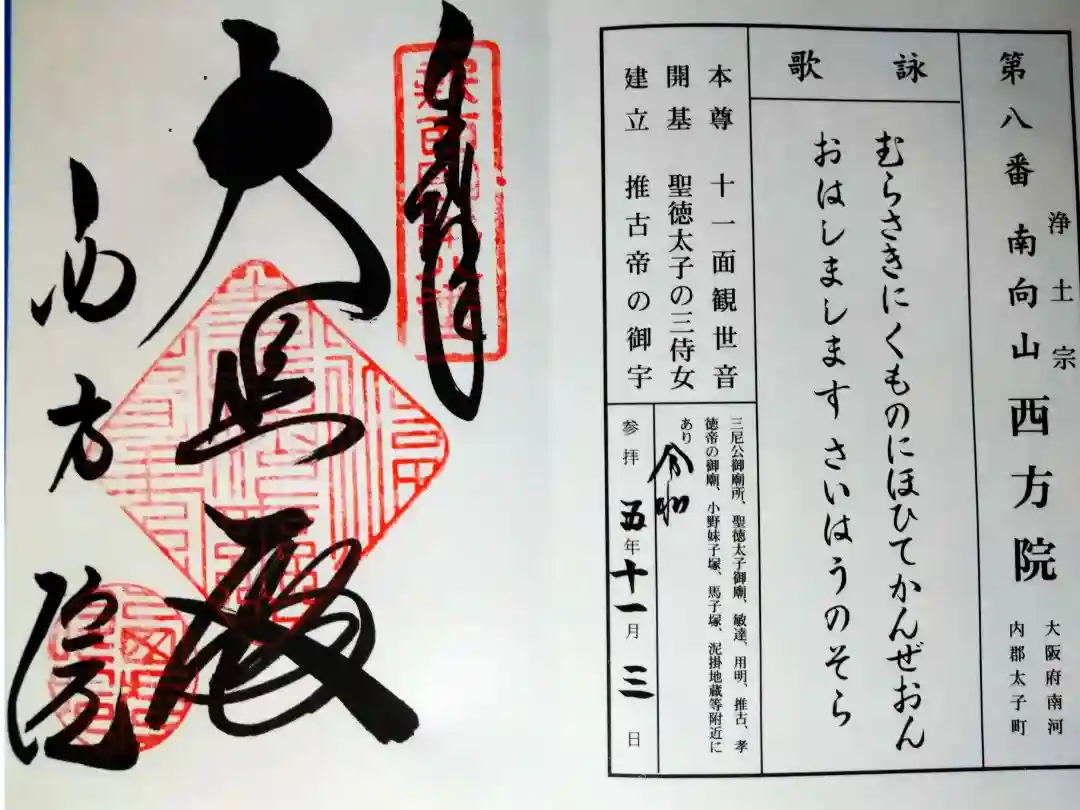 第八番 南向山 西方院
浄土宗
大阪府南河
内郡太子町
詠歌
むらさきにくものにほひてかんぜおん
おはしましますさいはうのそら
本尊 十一面観世音
開基 聖徳太子の三侍女
建立 推古帝の御宇
三尼公御廟所、聖徳太子御廟、敏達、用明、推古、孝
徳帝の御廟、小野妹子塚、馬子塚、泥掛地蔵等附近に
あり
令和
参拝 五年十一月三日
大悲殿
西方院